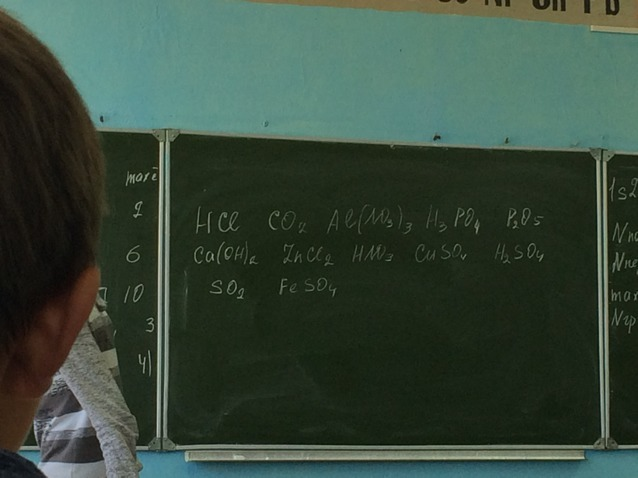 Ni Sn Pb
max ē
2
6
10
3
4)
HCl CO₂ Al(NO₃)₃ H₃PO₄ P₂O₅
Ca(OH)₂ ZnCl₂ HNO₃ CuSO₄ H₂SO₄
SO₂ FeSO₄
1s2
max